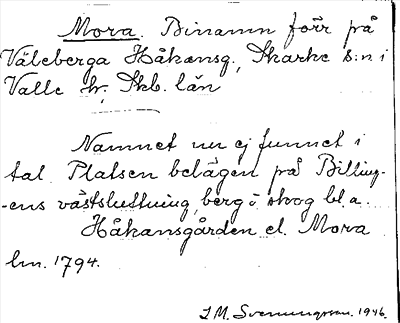 Mora. Binamn förr på
Väleberga Håkansg., Skarke s:n i
Valle hr, Skb. län
Namnet nu ej funnet i
tal. Platsen belägen på Billing-
-ens västsluttning, berg o skog bl.a.
Håkansgården el. Mora
lm. 1794.
I M. Svenungsson. 1946.